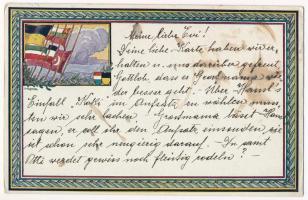 Meine liebe Evi!
Deine liebe Karte haben wir er-
halten u. uns darüber gefreut
Gottlob, dass es Grossmama wie-
der besser geht. Über Hansl's
Einfall "Kati" im Aufsatz zu wählen muss-
ten wir sehr lachen. Grossmama lässt Hansl
sagen, er soll ihr den Aufsatz einsenden, sie
ist schon sehr neugierig darauf. – Du samt
Otti werdet gewiss noch fleissig rodeln? –